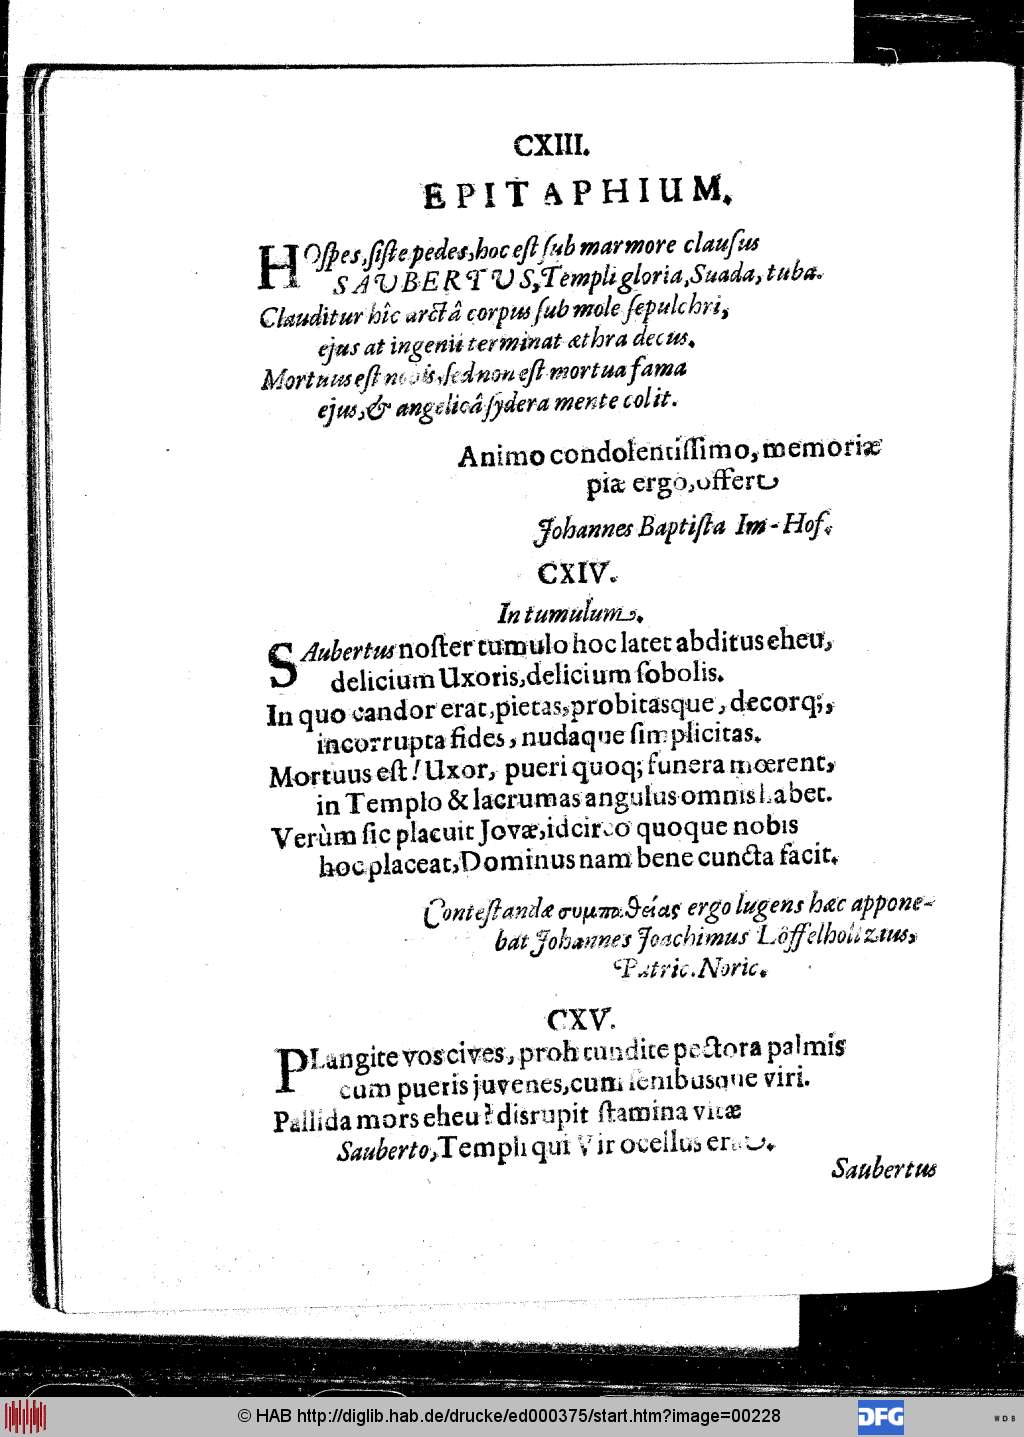 CXIII.
EPITAPHIUM.
HOſpes, ſiſte pedes, hoc eſt ſub marmore clauſus
SAUBERTUS, Templi gloria, Suada, tuba.
Clauditur hîc arctâ corpus ſub mole ſepulchri,
ejus at ingenii terminat æthra decus.
Mortuus eſt nobis, ſed non eſt mortua fama
ejus, & angelicâ ſydera mente colit.
Animo condolentiſſimo, memoriæ
piæ ergo, offert
Johannes Baptiſta Im-Hof.
CXIV.
In tumulum.
SAubertus noſter tumulo hoc latet abditus eheu,
delicium Uxoris, delicium ſobolis.
In quo candor erat, pietas, probitasque, decorq;,
incorrupta fides, nudaque ſimplicitas.
Mortuus eſt! Uxor, pueri quoq; funera mœrent,
in Templo & lacrumas angulus omnis habet.
Verùm ſic placuit Jovæ, idcirco quoque nobis
hoc placeat, Dominus nam bene cuncta facit.
Conteſtandæ συμπαθείας ergo lugens hæc appone-
bat Johannes Joachimus Löffelholtzius,
Patric. Noric.
CXV.
PLangite vos cives, proh tundite pectora palmis
cum pueris juvenes, cum ſenibusque viri.
Pallida mors eheu? disrupit ſtamina vitæ
Sauberto, Templi qui Vir ocellus erat.
Saubertus
© HAB http://diglib.hab.de/drucke/ed000375/start.htm?image=00228
DFG
WDB